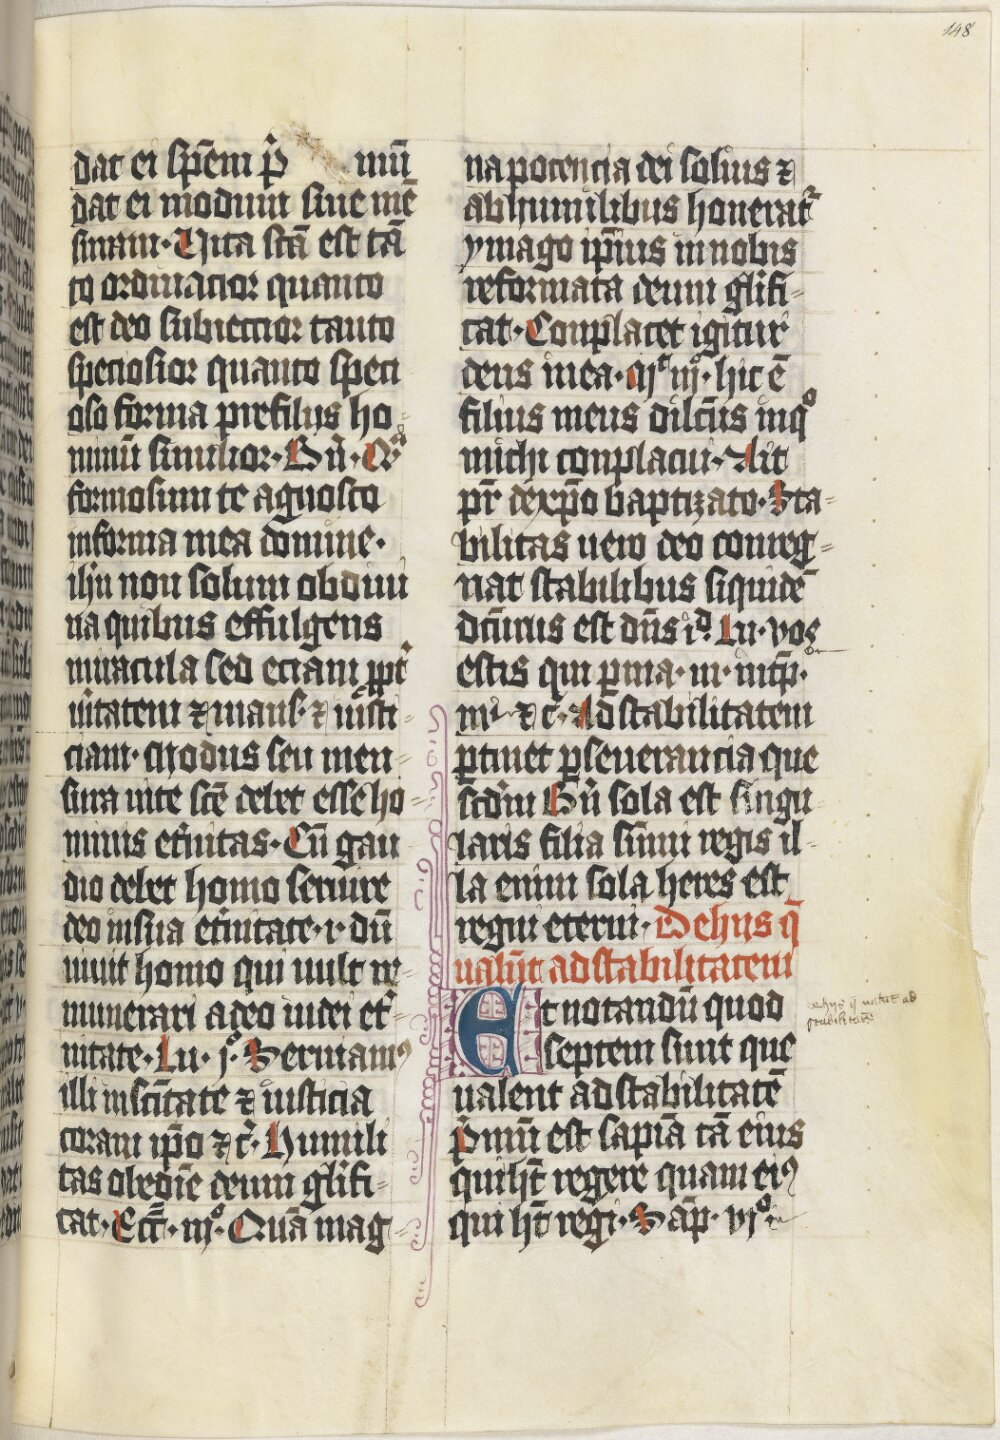 148
dat ei sp̄em p̄ mū
dat ei modum sine mē
suram· Uita sc̄a est tā
to ordinatior quanto
est deo subiectior tanto
speciosior quanto speci
oso forma prefiliis ho
minū similior· Bn̄·
formosum te agnosco
in forma mea domine·
ihū non solum ob diui
na quibus effulgens
miracula sed eciam ꝓpt̄
u̇itatem ⁊ mans· ⁊ iusti-
ciam· Modus seu men-
sura uite sc̄e debet esse ho
minis et̄nitas· Cū gau
dio debet homo seruire
deo in sua et̄nitate· r· dū
uiuit homo qui uult re-
munerari a deo in dei et̄
nitate· Lu· j̊· Seruiamꝰ
illi in sc̄itate ⁊ iusticia
coram ip̄o ⁊ c̄· Humili
tas obedīe deum gl̄ifi-
cat· Ecc̄· iij̊· Quā mag
na potencia dei solius ⁊
ab humilibus honorat᷑
ymago ip̄ius in nobis
reformata deum gl̄ifi-
cat· Conplacet igitur
deus in ea· Mͭ iij̊· hic ē
filius meus dilc̄us in q̊
michi conplacui· Ait
pr̄ de xp̄o baptizato· Sta-
bilitas uero deo conreg-
nat stabilibus siquidē
dc̄urus est dn̄s Lu· vos
estis qui ꝑma· in· intp̄·
mͥ ⁊ c̄· Ad stabilitatem
ꝑtinet ꝑseuerancia que
sc̄dm Bn̄ sola est singu-
laris filia sūmi regis il-
la enim sola heres est
regni eterni· De hiis q̄
ualn̄t ad stabilitatem
Et notandū quod
septem sunt que
ualent ad stabilitatē
P̄mū est sapīa tā eius
qui hͣt regere quam eiꝰ
qui hͣt regi· Sap̄· vj̊·
de hiis q̄ valēt ad
stabilitatē